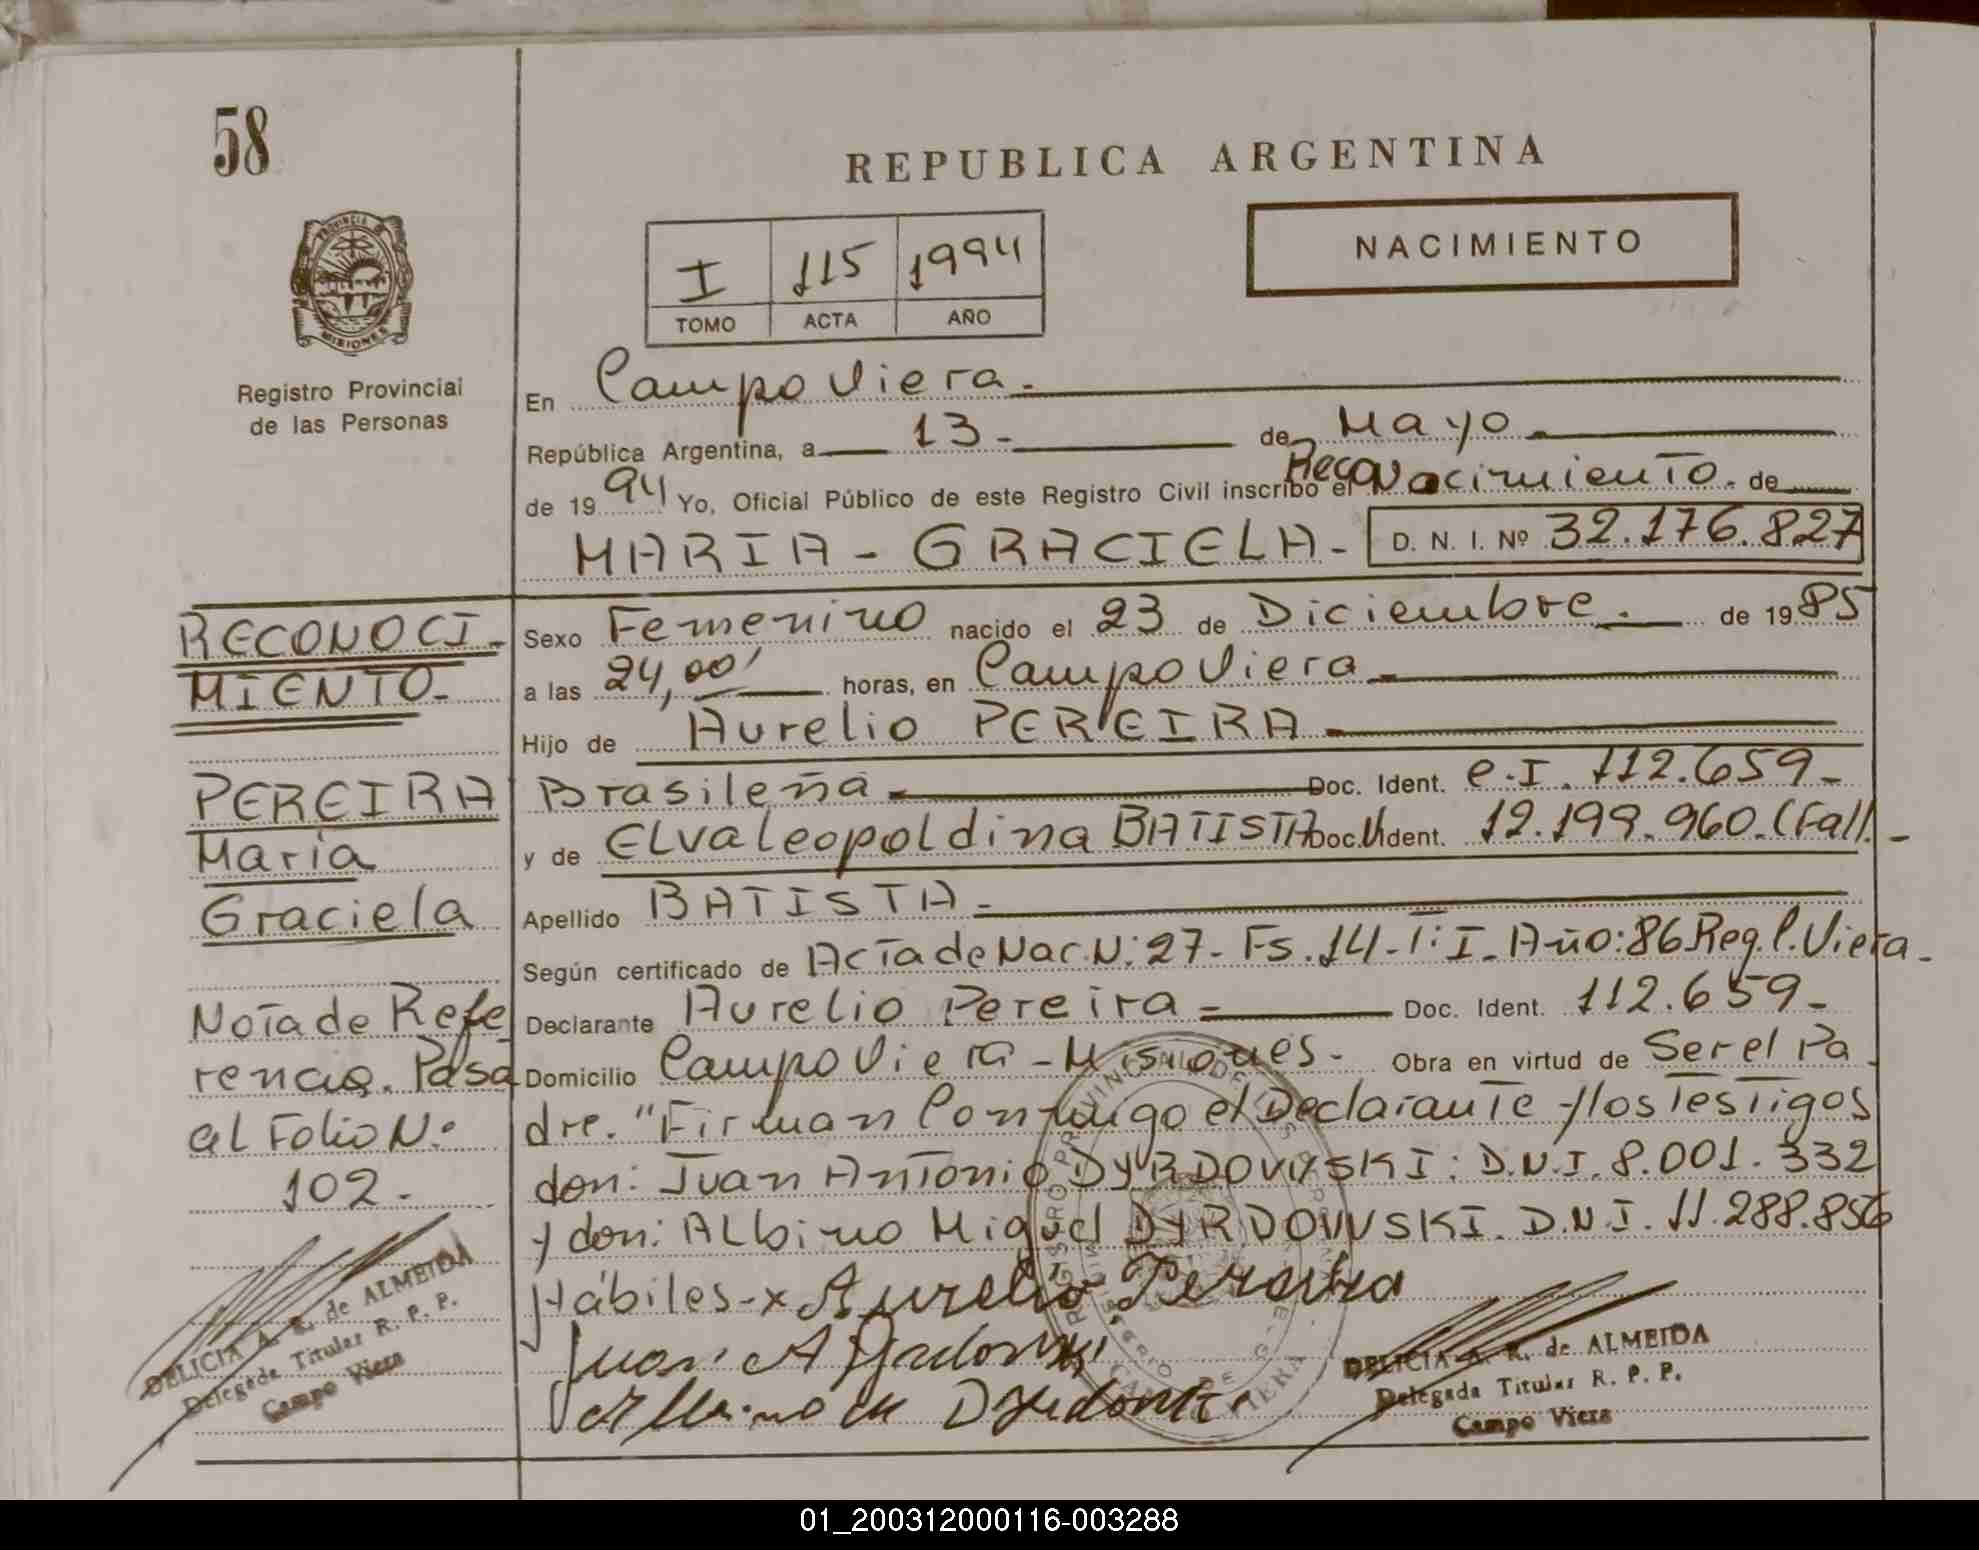 58
REPUBLICA ARGENTINA
NACIMIENTO
I 115 1994
TOMO ACTA AÑO
PROVINCIA
MISIONES
Registro Provincial
de las Personas
En Campo Viera.
República Argentina, a 13- de Mayo
de 1994 Yo, Oficial Público de este Registro Civil inscribo el Reconocimiento. de
MARIA - GRACIELA - D. N. I. Nº 32.176.827
RECONOCI-
MIENTO-
Sexo Femenino nacido el 23 de Diciembre. de 1985
a las 24,00' horas, en Campo Viera
Hijo de Aurelio PEREIRA
Brasileña Doc. Ident. C.I. 112.659-
y de ELva Leopoldina BATISTA Doc. Ident. 12.199.960.(Fall.-
Apellido BATISTA-
Según certificado de Acta de Nac. N: 27- Fs. 14-T: I- Año: 86 Reg. C. Viera-
Declarante Aurelio Pereira Doc. Ident. 112.659-
Domicilio Campo Viera - Misiones- Obra en virtud de Ser el Pa
dre. "Firman Conmigo el Declarante y los Testigos
don: Juan Antonio DYRDOVVSKI: D.N.I. 8.001.332
y don: ALbino Miguel DYRDOVVSKI. D.N.I. 11.288.856
Hábiles-x Aurelio Pereira
PEREIRA
María
Graciela
Nota de Refe
rencia. Pasa
al Folio N:
102-
DELICIA A. R. de ALMEIDA
Delegada Titular R. P. P.
Campo Viera
DELICIA A. R. de ALMEIDA
Delegada Titular R. P. P.
Campo Viera
01_200312000116-003288